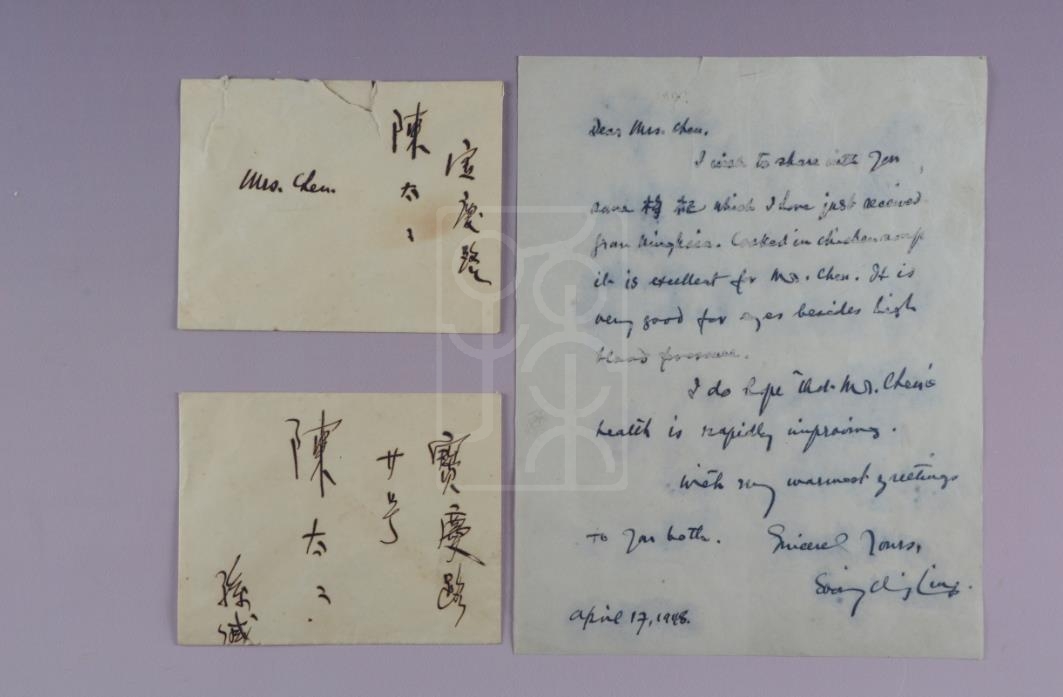 寶慶路
陳太太
Mrs. Chen.
寶慶路
廿号
陳太太
孫缄
Dear Mrs. Chen,
I wish to share with you
some which I have just received
from Ninghsia. Cooked in chicken soup
it is excellent for Mr. Chen. It is
very good for eyes besides high
blood pressure.
I do hope that Mr. Chen's
health is rapidly improving.
With my warmest greetings
to you both. Sincerely Yours,
Soong Ching Ling.
April 17, 1948.